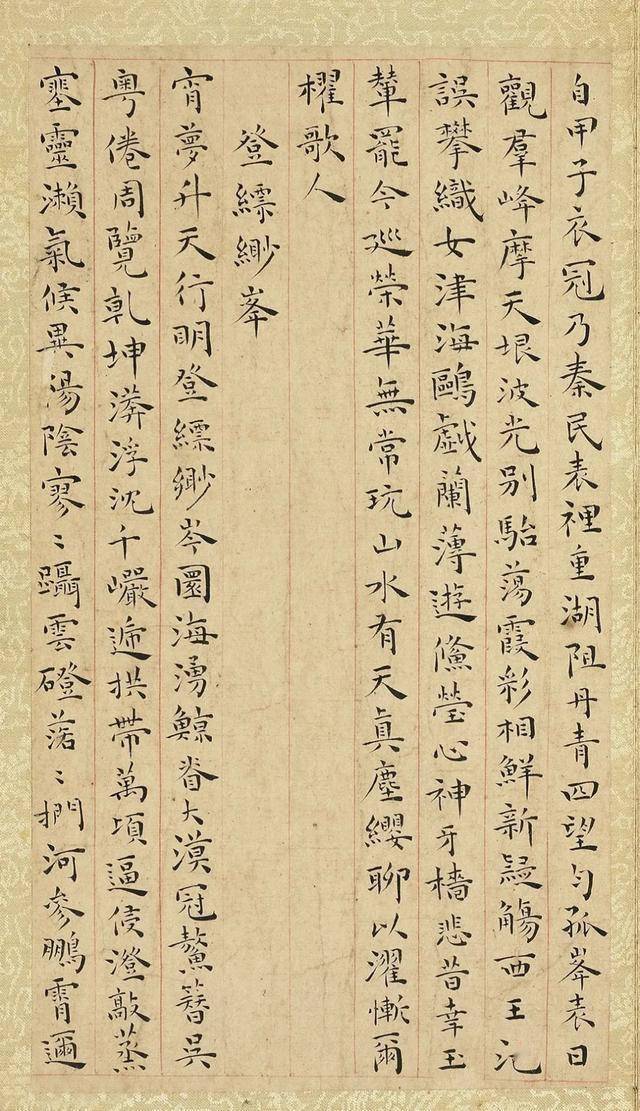 自甲子衣冠乃秦民表裡重湖阻丹青四望勻孤峯表日
觀羣峰摩天垠波光別駘蕩霞彩相鮮新疑觴西王汜
誤攀織女津海鷗戯蘭薄遊鯈瑩心神牙檣悲昔幸玉
輦罷今廵榮華無常玩山水有天真塵纓聊以濯慚爾
櫂歌人
登縹緲峯
宵夢升天行明登縹緲岑圜海湧鯨脊大漠冠鰲簪吳
粵倦周覽乾坤漭浮沈千巖遞拱帶萬頃逼侵澄敲蒸
窒靈瀨氣候異湯陰寥〻躡雲磴落〻捫河參鵬霄邇